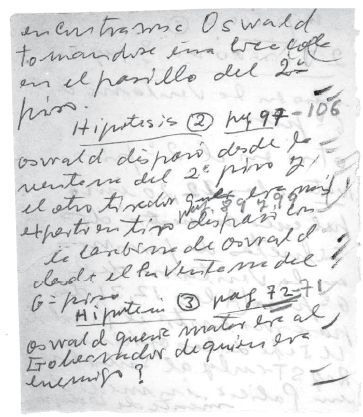 encontrasose Oswald
tomandose una coca cola
en el pasillo del 2º
piso.
Hipotesis ② pag 97-106
oswald disparó desde la
ventana del 2º piso y
el otro tirador que era mas
experto en tiro disparó con
la carabina de oswald
desde el ventana del
6º piso
Hipotesis ③ pag 72-71
oswald queria matar era al
Gobernador de quien era
enemigo?